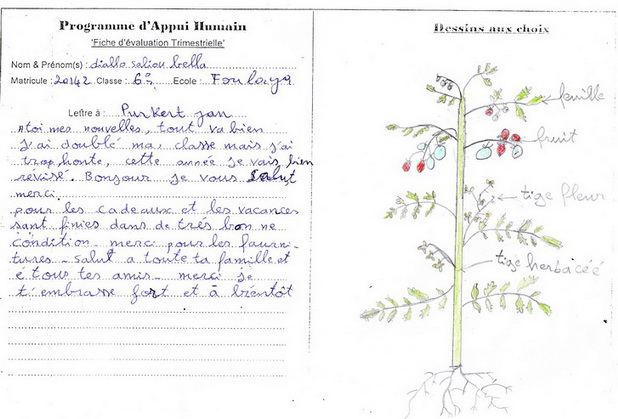 Programme d'Appui Humain
'Fiche d'évaluation Trimestrielle'
Nom & Prénom(s) : diallo saliou bella
Matricule : 20142 Classe : 6è Ecole : Foulaya
Lettre à : Purkert jan
a toi mes nouvelles, tout va bien
j'ai doublé ma, classe mais j'ai
trop honte, cette année je vais bien
revisé. Bonjour je vous salut,
merci.
pour les cadeaux et les vacances
sant finies dans de très bon ne
condition. merci pour les fourni-
tures - salut a toute ta famille et
é tous tes amis - merci je
t'embrasse fort et à bientôt
Dessins aux choix
feuille
fruit
tige fleur
tige herbacéé